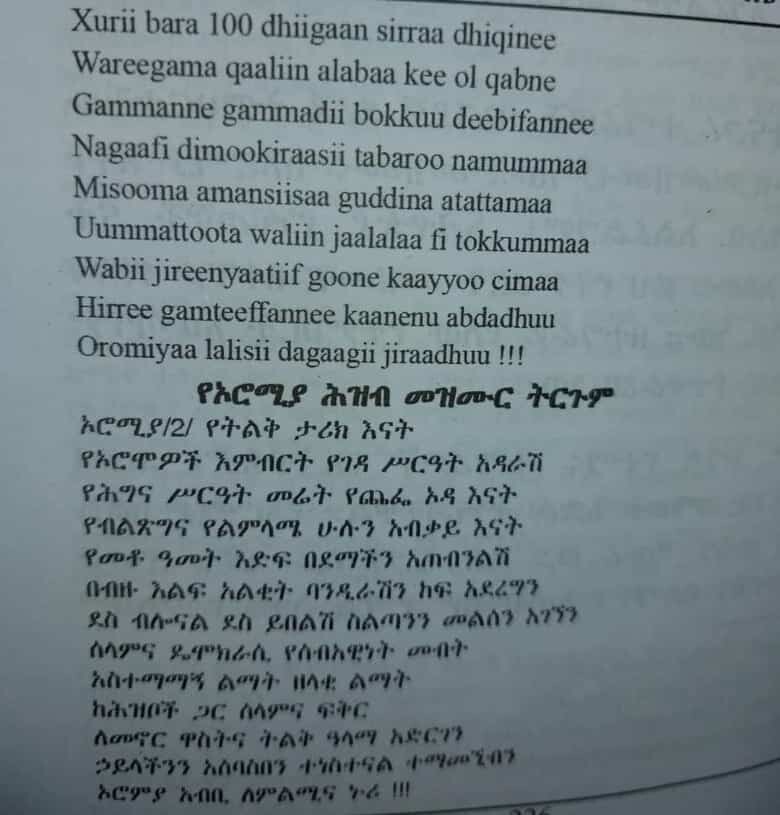 Xurii bara 100 dhiigaan sirraa dhiqinee
Wareegama qaaliin alabaa kee ol qabne
Gammanne gammadii bokkuu deebifannee
Nagaafi dimookiraasii tabaroo namummaa
Misooma amansiisaa guddina atattamaa
Uummattoota waliin jaalalaa fi tokkummaa
Wabii jireenyaatiif goone kaayyoo cimaa
Hirree gamteeffannee kaanenu abdadhuu
Oromiyaa lalisii dagaagii jiraadhuu !!!
የኦሮሚያ ሕዝብ መዝሙር ትርጉም
ኦሮሚያ/2/ የትልቅ ታሪክ እናት
የኦሮሞዎች እምብርት የገዳ ሥርዓት አዳራሽ
የሕግና ሥርዓት መሬት የጨፌ ኦዳ እናት
የብልጽግና የልምላሜ ሁሉን አብቃይ እናት
የመቶ ዓመት እድፍ በደማችን አጠብንልሽ
በብዙ እልፍ እልቂት ባንዲራሽን ከፍ አደረግን
ደስ ብሎናል ደስ ይበልሽ ስልጣንን መልሰን አገኘን
ሰላምና ዴሞክራሲ የሰብአዊነት መብት
አስተማማኝ ልማት ዘላቂ ልማት
ከሕዝቦች ጋር ሰላምና ፍቅር
ለመኖር ዋስትና ትልቅ ዓላማ አድርገን
ኃይላችንን አሰባስበን ተነስተናል ተማመኚብን
ኦሮምያ አብቢ ለምልሚና ኑሪ !!!